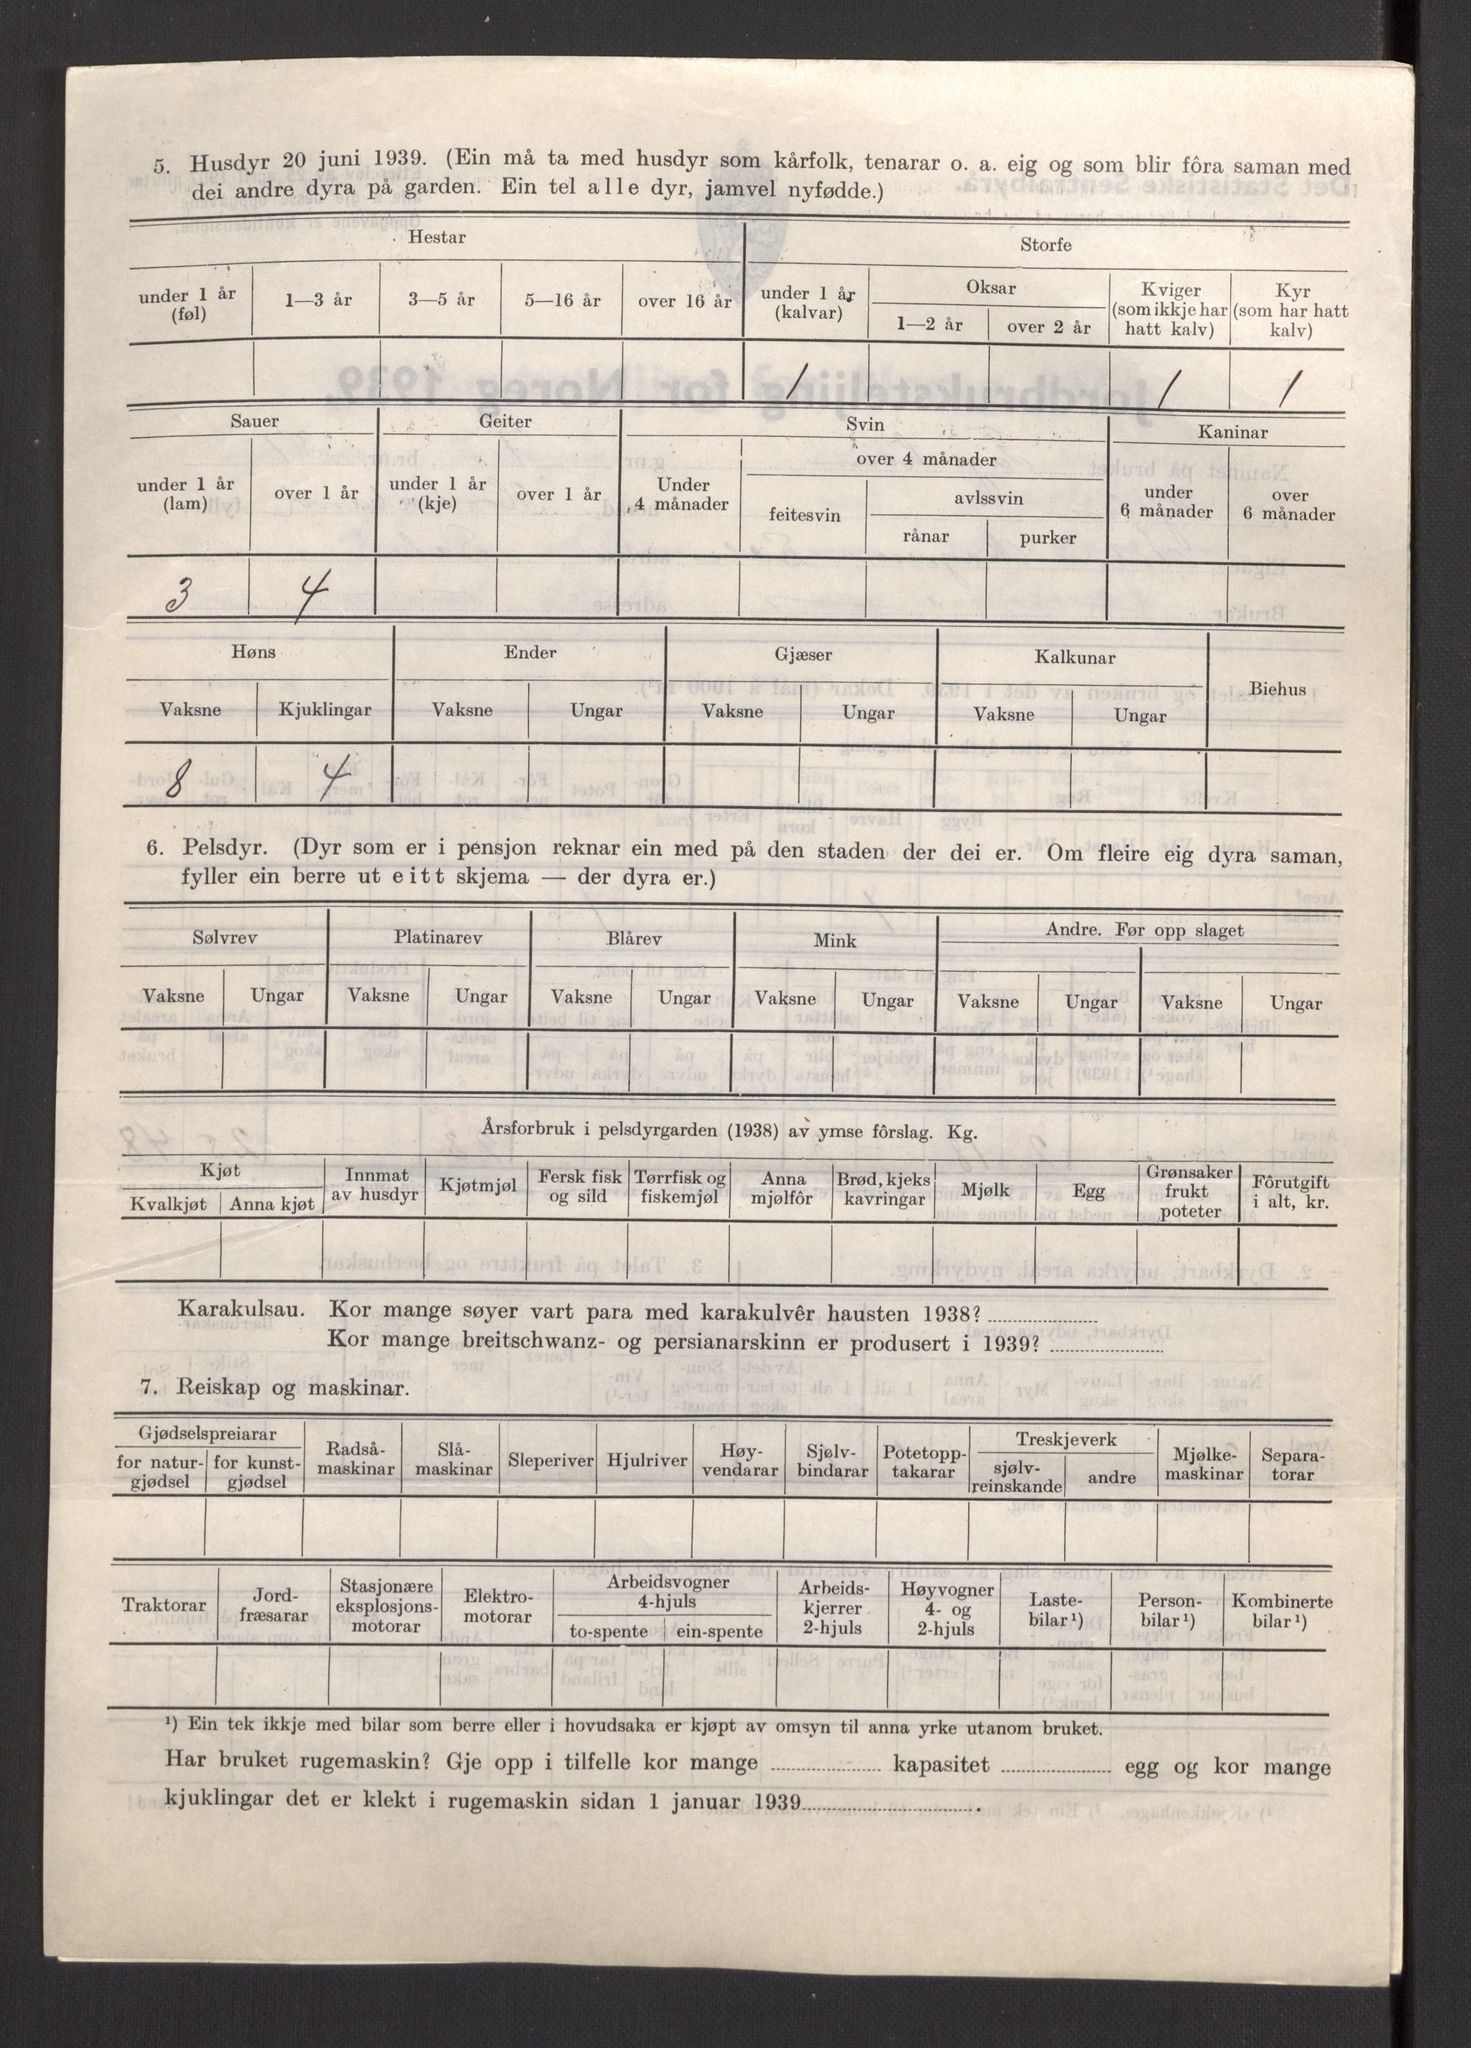 5. Husdyr 20 juni 1939. (Ein må ta med husdyr som kårfolk, tenarar o. a. eig og som blir fôra saman med
dei andre dyra på garden. Ein tel alle dyr, jamvel nyfødde.)
Hestar Storfe
under 1 år (føl) 1—3 år 3—5 år 5—16 år over 16 år under 1 år (kalvar) Oksar 1—2 år over 2 år Kviger (som ikkje har hatt kalv) Kyr (som har hatt kalv)
1 1 1
Sauer Geiter Svin Kaninar
under 1 år (lam) over 1 år under 1 år (kje) over 1 år Under 4 månader over 4 månader feitesvin avlssvin rånar purker under 6 månader over 6 månader
3 4
Høns Ender Gjæser Kalkunar Biehus
Vaksne Kjuklingar Vaksne Ungar Vaksne Ungar Vaksne Ungar
8 4
6. Pelsdyr. (Dyr som er i pensjon reknar ein med på den staden der dei er. Om fleire eig dyra saman,
fyller ein berre ut eitt skjema — der dyra er.)
Sølvrev Platinarev Blårev Mink Andre. Før opp slaget
Vaksne Ungar Vaksne Ungar Vaksne Ungar Vaksne Ungar Vaksne Ungar Vaksne Ungar
Årsforbruk i pelsdyrgarden (1938) av ymse fôrslag. Kg.
Kjøt Kvalkjøt Anna kjøt Innmat av husdyr Kjøtmjøl Fersk fisk og sild Tørrfisk og fiskemjøl Anna mjølfôr Brød, kjeks kavringar Mjølk Egg Grønsaker frukt poteter Fôrutgift i alt, kr.
Karakulsau. Kor mange søyer vart para med karakulvêr hausten 1938?
Kor mange breitschwanz- og persianarskinn er produsert i 1939?
7. Reiskap og maskinar.
Gjødselspreiarar for natur-gjødsel for kunst-gjødsel Radså-maskinar Slå-maskinar Sleperiver Hjulriver Høy-vendarar Sjølv-bindarar Potetopp-takarar Treskjeverk sjølv-reinskande andre Mjølke-maskinar Separa-torar
Traktorar Jord-fræsarar Stasjonære eksplosjons-motorar Elektro-motorar Arbeidsvogner 4-hjuls to-spente ein-spente Arbeids-kjerrer 2-hjuls Høyvogner 4- og 2-hjuls Laste-bilar¹) Person-bilar¹) Kombinerte bilar¹)
¹) Ein tek ikkje med bilar som berre eller i hovudsaka er kjøpt av omsyn til anna yrke utanom bruket.
Har bruket rugemaskin? Gje opp i tilfelle kor mange kapasitet egg og kor mange
kjuklingar det er klekt i rugemaskin sidan 1 januar 1939.